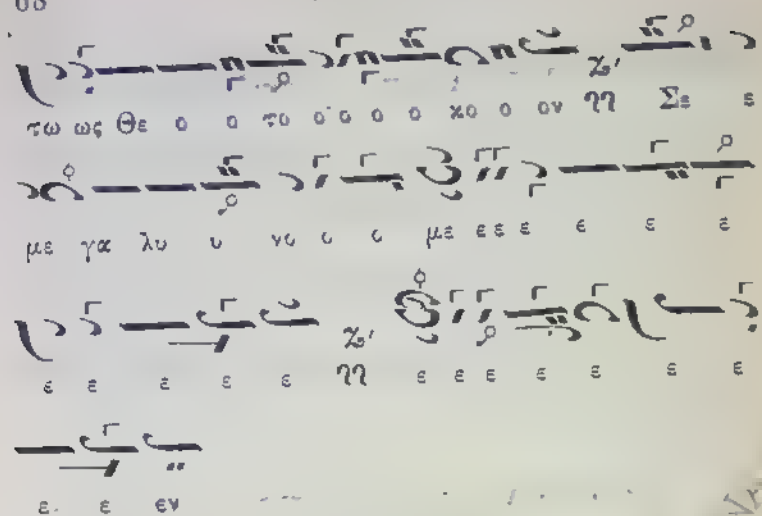 τω ως Θε ο ο το ο ο ο ο κο ο ον Σε ε
με γα λυ υ νο ο ο με ε ε ε ε ε ε
ε ε ε ε ε ε ε ε ε ε ε ε
ε ε εν